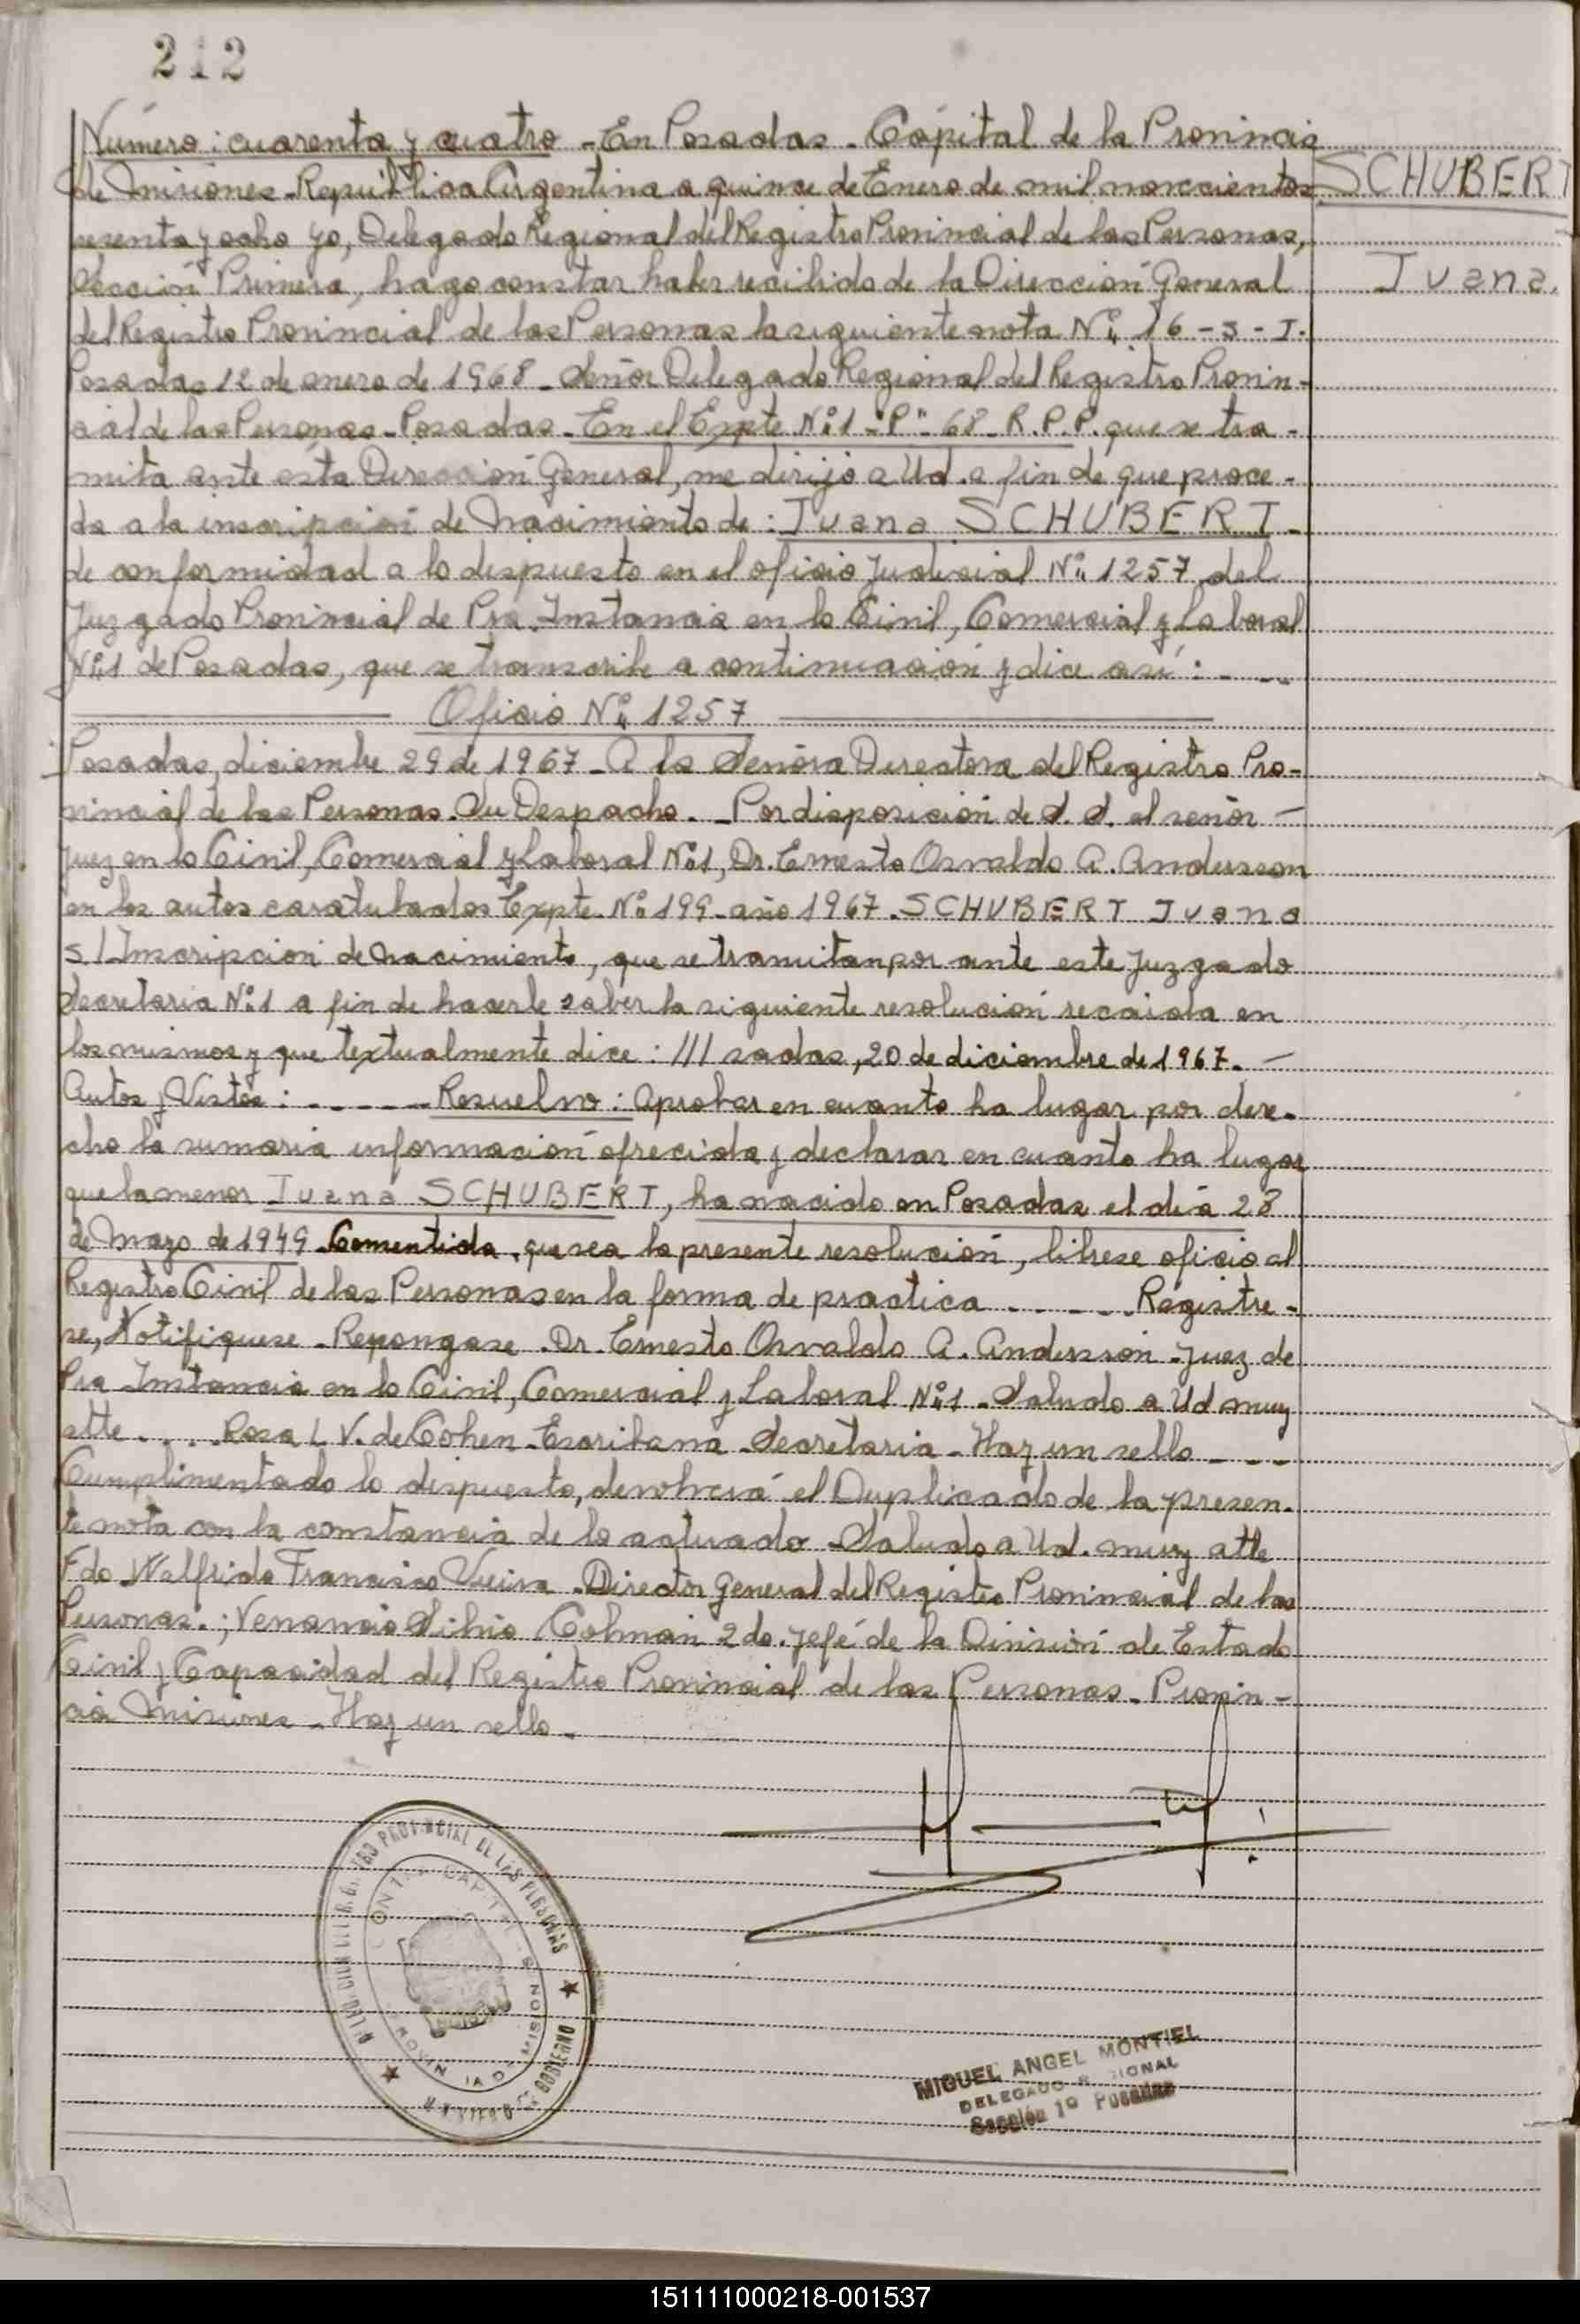 212
Número: cuarenta y cuatro - En Posadas - Capital de la Provincia
SCHUBERT
de Misiones - República Argentina a quince de Enero de mil novecientos
sesenta y ocho yo, Delegado Regional del Registro Provincial de las Personas,
Juana.
Sección Primera, hago constar haber recibido de la Dirección General
del Registro Provincial de las Personas la siguiente nota Nº 16 - S - I.
Posadas 12 de enero de 1968 - Señor Delegado Regional del Registro Provin-
cial de las Personas - Posadas - En el Expte Nº 1 - "P" - 68 - R.P.P. que se tra-
mita ante esta Dirección General, me dirijo a Ud. a fin de que proce-
da a la inscripción de Nacimiento de: Juana SCHUBERT -
de conformidad a lo dispuesto en el oficio Judicial Nº 1257 del
Juzgado Provincial de Pra. Instancia en lo Civil, Comercial y Laboral
Nº 1 de Posadas, que se transcribe a continuación y dice así: - - -
Oficio Nº 1257
Posadas, diciembre 29 de 1967 - A la Señora Directora del Registro Pro-
vincial de las Personas. Su Despacho. - Por disposición de S. S. el señor -
Juez en lo Civil, Comercial y Laboral Nº 1, Dr. Ernesto Osvaldo A. Andersson
en los autos caratulados Expte. Nº 199 - año 1967 - SCHUBERT Juana
s/ Inscripción de Nacimiento, que se tramitan por ante este Juzgado
Secretaria Nº 1 a fin de hacerle saber la siguiente resolución recaida en
los mismos y que textualmente dice: /// sadas, 20 de diciembre de 1967. -
Autos y Vistos: - - - - - Resuelvo: Aprobar en cuanto ha lugar por dere-
cho la sumaria información ofrecida y declarar en cuanto ha lugar
que la menor Juana SCHUBERT, ha nacido en Posadas el día 28
de Mazo de 1949 - Comentida que sea la presente resolución, librese oficio al
Registro Civil de las Personas en la forma de practica - - - - - Registre-
se, Notifiquese - Repongase - Dr. Ernesto Osvaldo A. Andersson - Juez de
Pra Instancia en lo Civil, Comercial y Laboral Nº 1 - Saludo a Ud muy
atte - . . . Rosa L V. de Cohen - Escribana - Secretaria - Hay un sello - - -
Cumplimentado lo dispuesto, devolverá el Duplicado de la presen-
te nota con la constancia de lo actuado - Saludo a Ud. muy atte
Fdo Walfrido Francisco Vieira - Director General del Registro Provincial de las
Personas.; Venancio Silvio Colman 2do. Jefe de la División de Estado
Civil y Capacidad del Registro Provincial de las Personas - Provin-
cia Misiones - Hay un sello -
PROVINCIAL DE LAS PERSONAS
CAPITAL
GOBIERNO
MIGUEL ANGEL MONTIEL
DELEGADO
Sección 1º Posadas
151111000218-001537